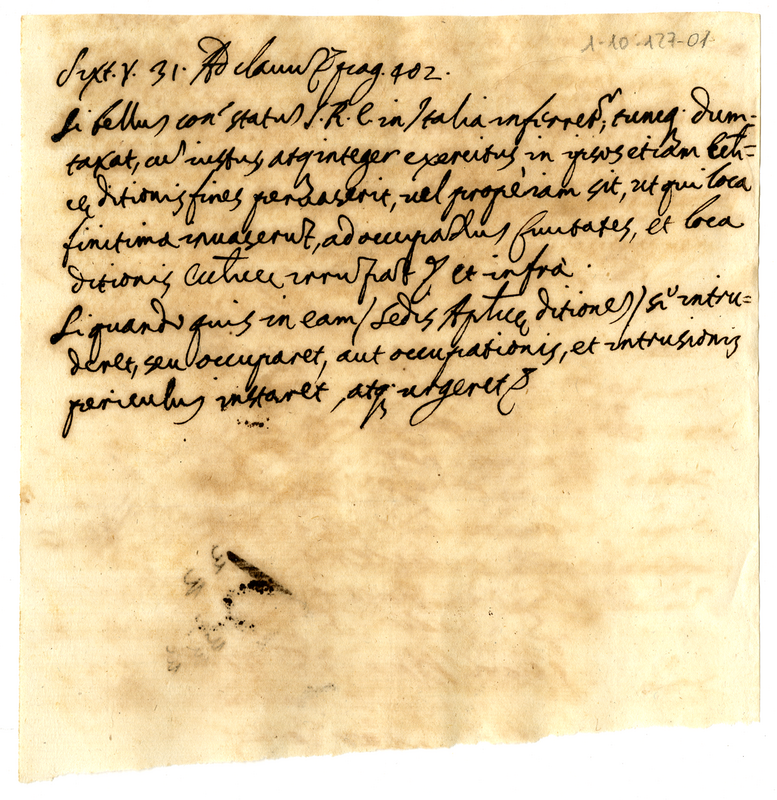 1-10-127-01
Sixt. V. 31. Ad clavum &c frag. 402.
Si bellus con. status S. R. E. in Italia inferret, tuncq. dum-
taxat, cu iustus, atq integer exercitus in ipsos etiam
ditionis fines pervaserit, vel propè iam sit, ut qui loca
finitima invaserunt, ad occupadas Civitates, et loca
ditionis irrupat & et infrà.
Si quando quis in eam / Sedis Aplicę ditiones / si intru=
deret, seu occuparet, aut occupationis, et intrusionis
periculus instaret, atq. urgeret &